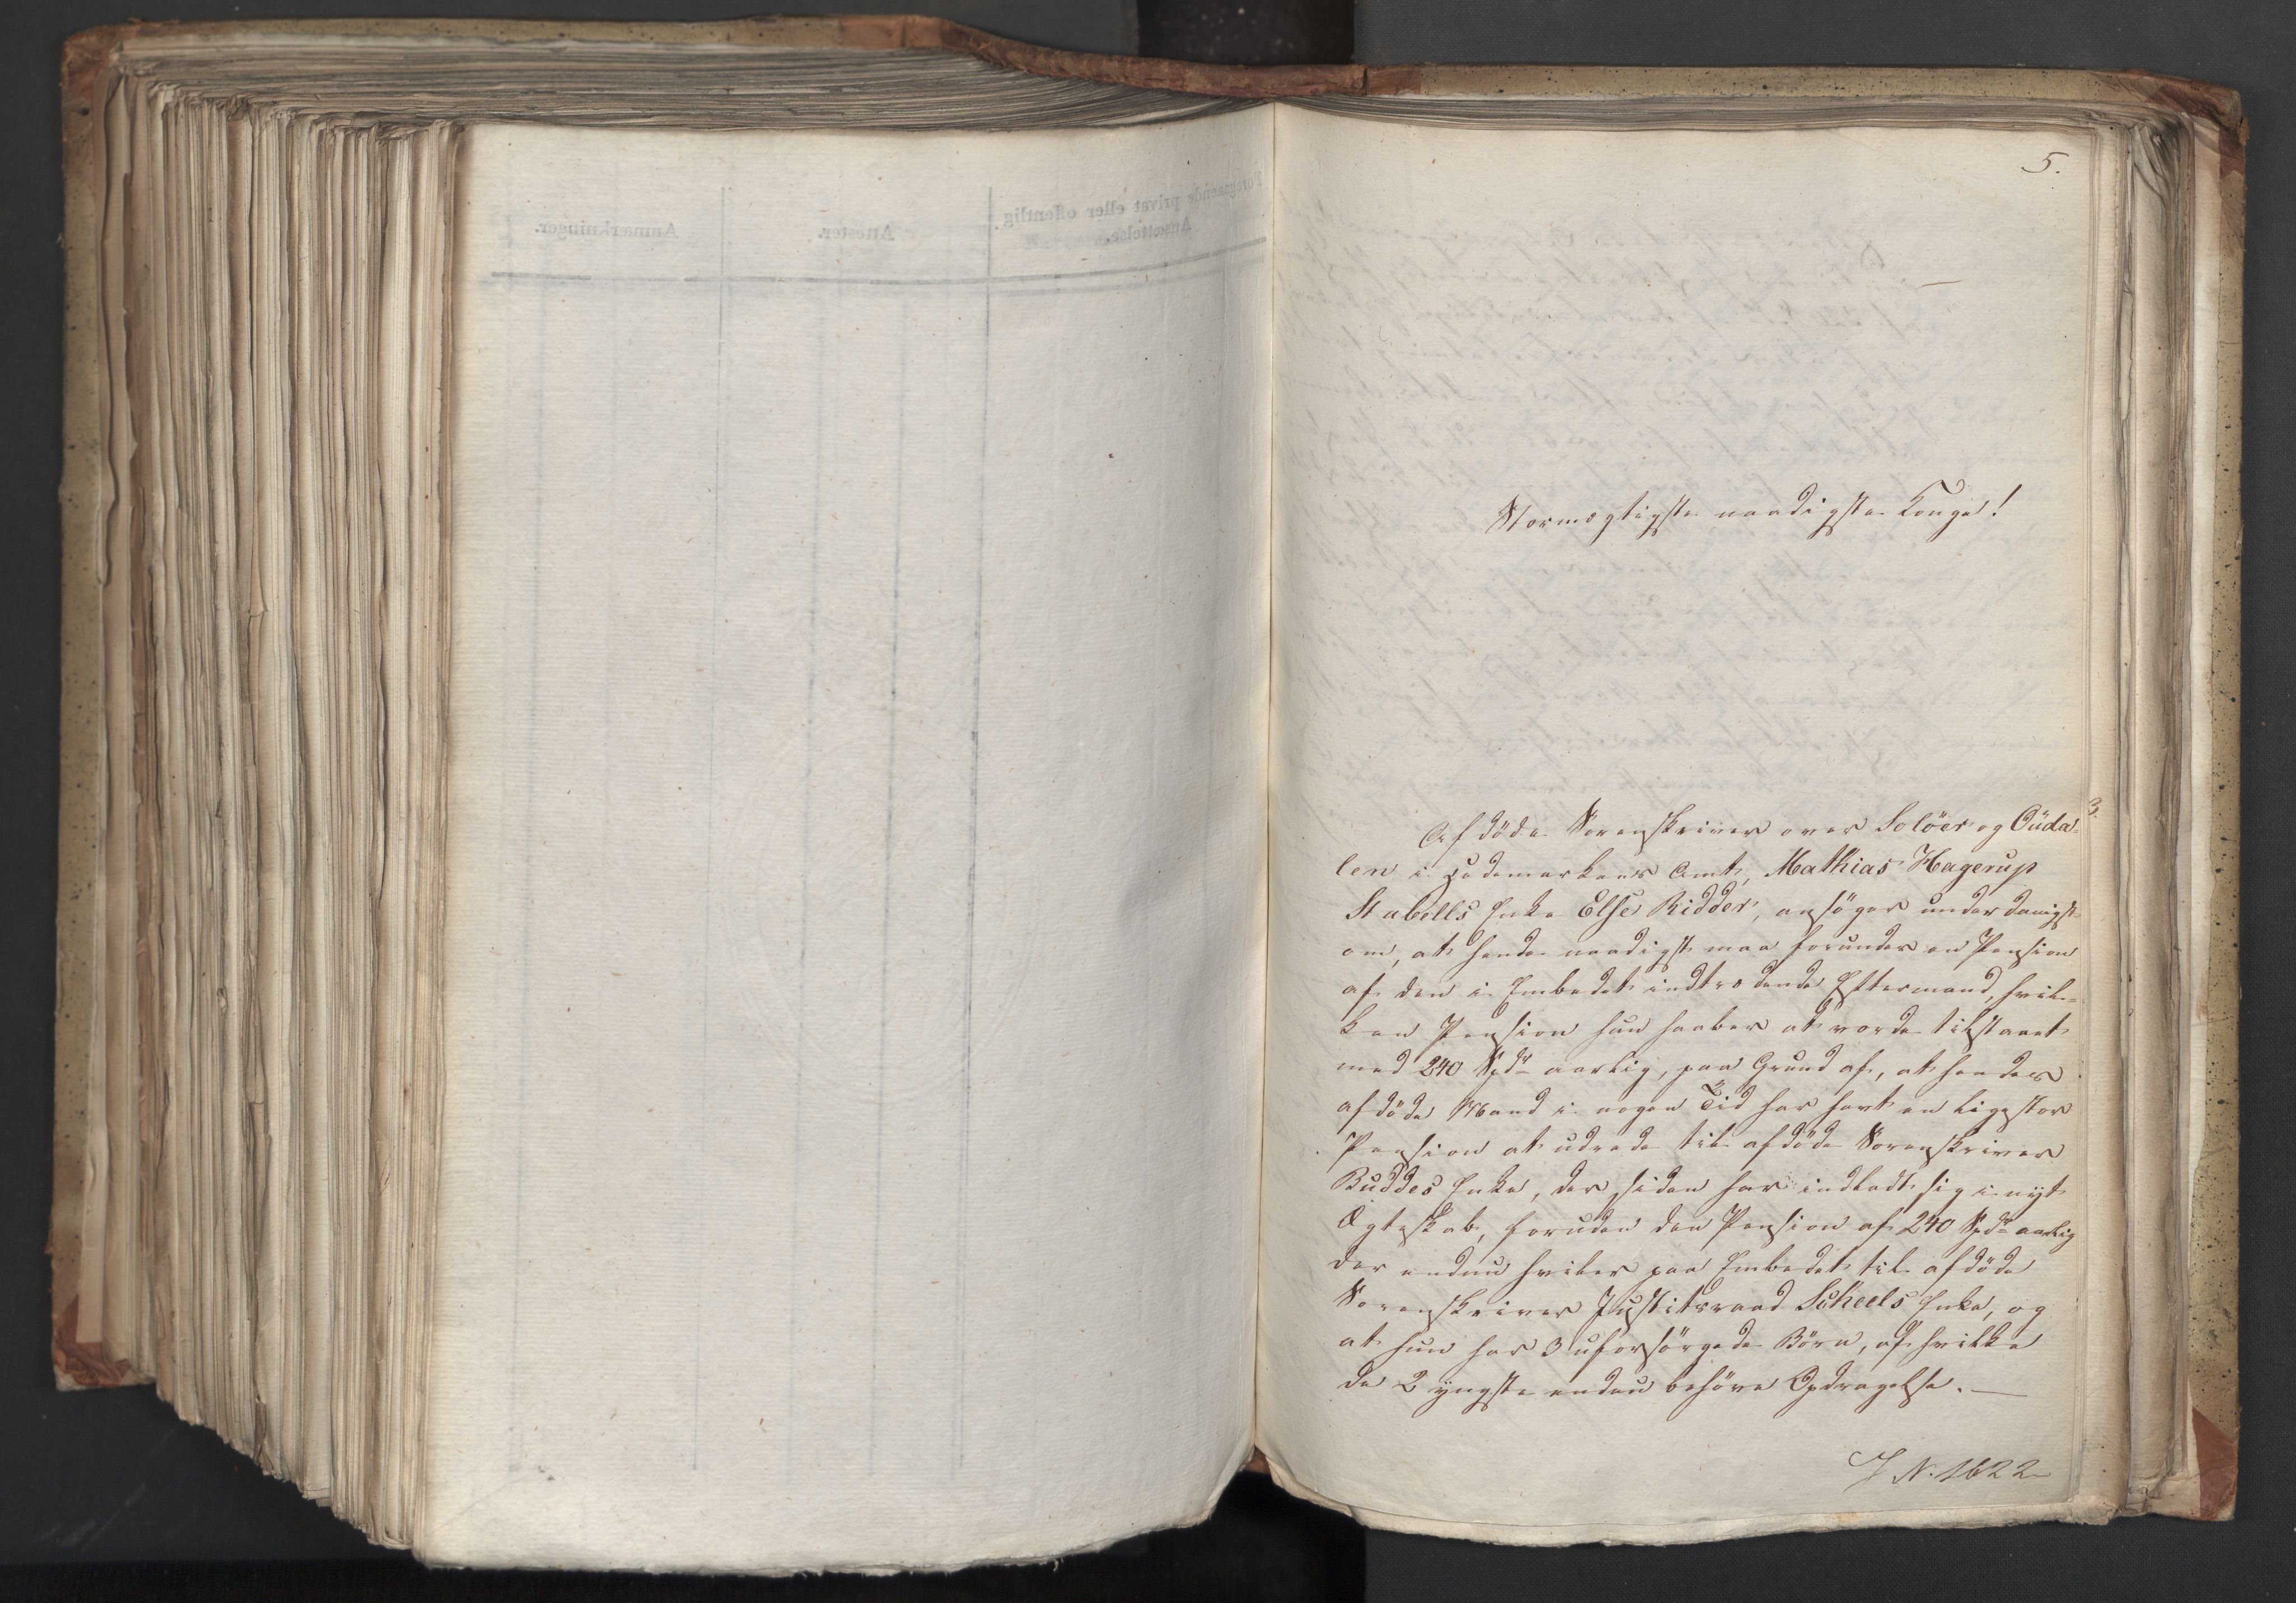 5.
Stormægtigste naadigste Konge!
3.
Afdöde Sorenskriver over Solöer og Oüda-
len i Hedemarkens Amt, Mathias Hagerup
Stabells Enke Else Ridder, ansöger underdanigst
om, at hende naadigst maa forundes en Pension
af den i Embedet indtrædende Eftermand, hvil-
ken Pension hun haaber at vorde tilstaaet
med 240 Spdr aarlig, paa Grund af, at hendes
afdöde Mand i nogen Tid har havt en ligestor
Pension at udrede til afdöde Sorenskriver
Buddes Enke, der siden har indladt sig i nyt
Ægteskab, foruden den Pension af 240 Spdr aarlig
der endnu hviler paa Embedet til afdöde
Sorenskriver Justitsraad Scheels Enke, og
at hun har 3 uforsörgede Börn, af hvilke
de 2 yngste endnu behöve Opdragelse. —
J N. 1622
Foregaaende privat eller offentlig
Ansættelse.
Attester.
Anmærkninger.